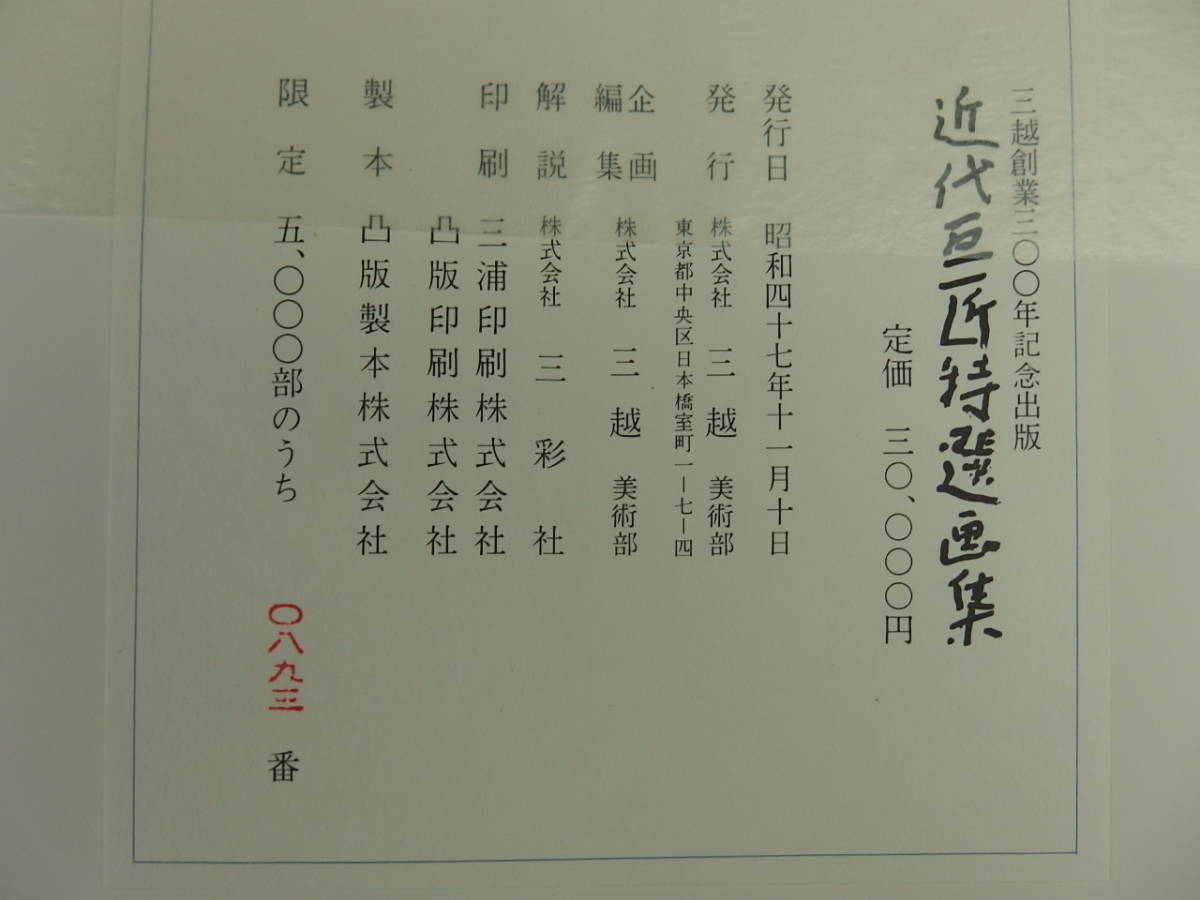 三越創業三〇〇年記念出版
近代巨匠特選画集
定価 三〇、〇〇〇円
発行日 昭和四十七年十一月十日
発行 株式会社 三越 美術部
東京都中央区日本橋室町一ー七ー四
企画
編集 株式会社 三越 美術部
解説 株式会社 三彩社
印刷 三浦印刷株式会社
凸版印刷株式会社
製本 凸版製本株式会社
限定 五、〇〇〇部のうち 〇八九三 番